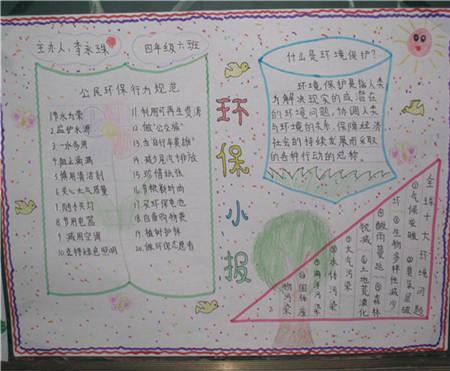 主办人:李永珠
四年级六班
公民环保行为规范
1.节水为荣
2.监护水源
3.一水多用
4.阻止滴漏
5.慎用清洁剂
6.关心大气质量
7.随手关灯
8.节用电器
9.减用空调
10.支持绿色照明
11.利用可再生资源
12.做"公交族"
13.当"自行车英雄"
14.减少尾气排放
15.珍惜纸张
16.
17.买环保电池
18.自备购物袋
19.植树护林
20.做环保志愿者
环保小报
什么是环境保护?
环境保护是指人类
为解决现实的或潜在
的环境问题,协调人类
与环境的关系,保障经济
社会的持续发展而采取
的各种行动的总称。
全球十大环境问题
①气候变暖 ②臭氧层破
坏 ③生物多样性减少
④酸雨蔓延 ⑤森林
锐减 ⑥土地荒漠化
⑦大气污染
⑧水体污染
⑨海洋污染
⑩固体废
物污染